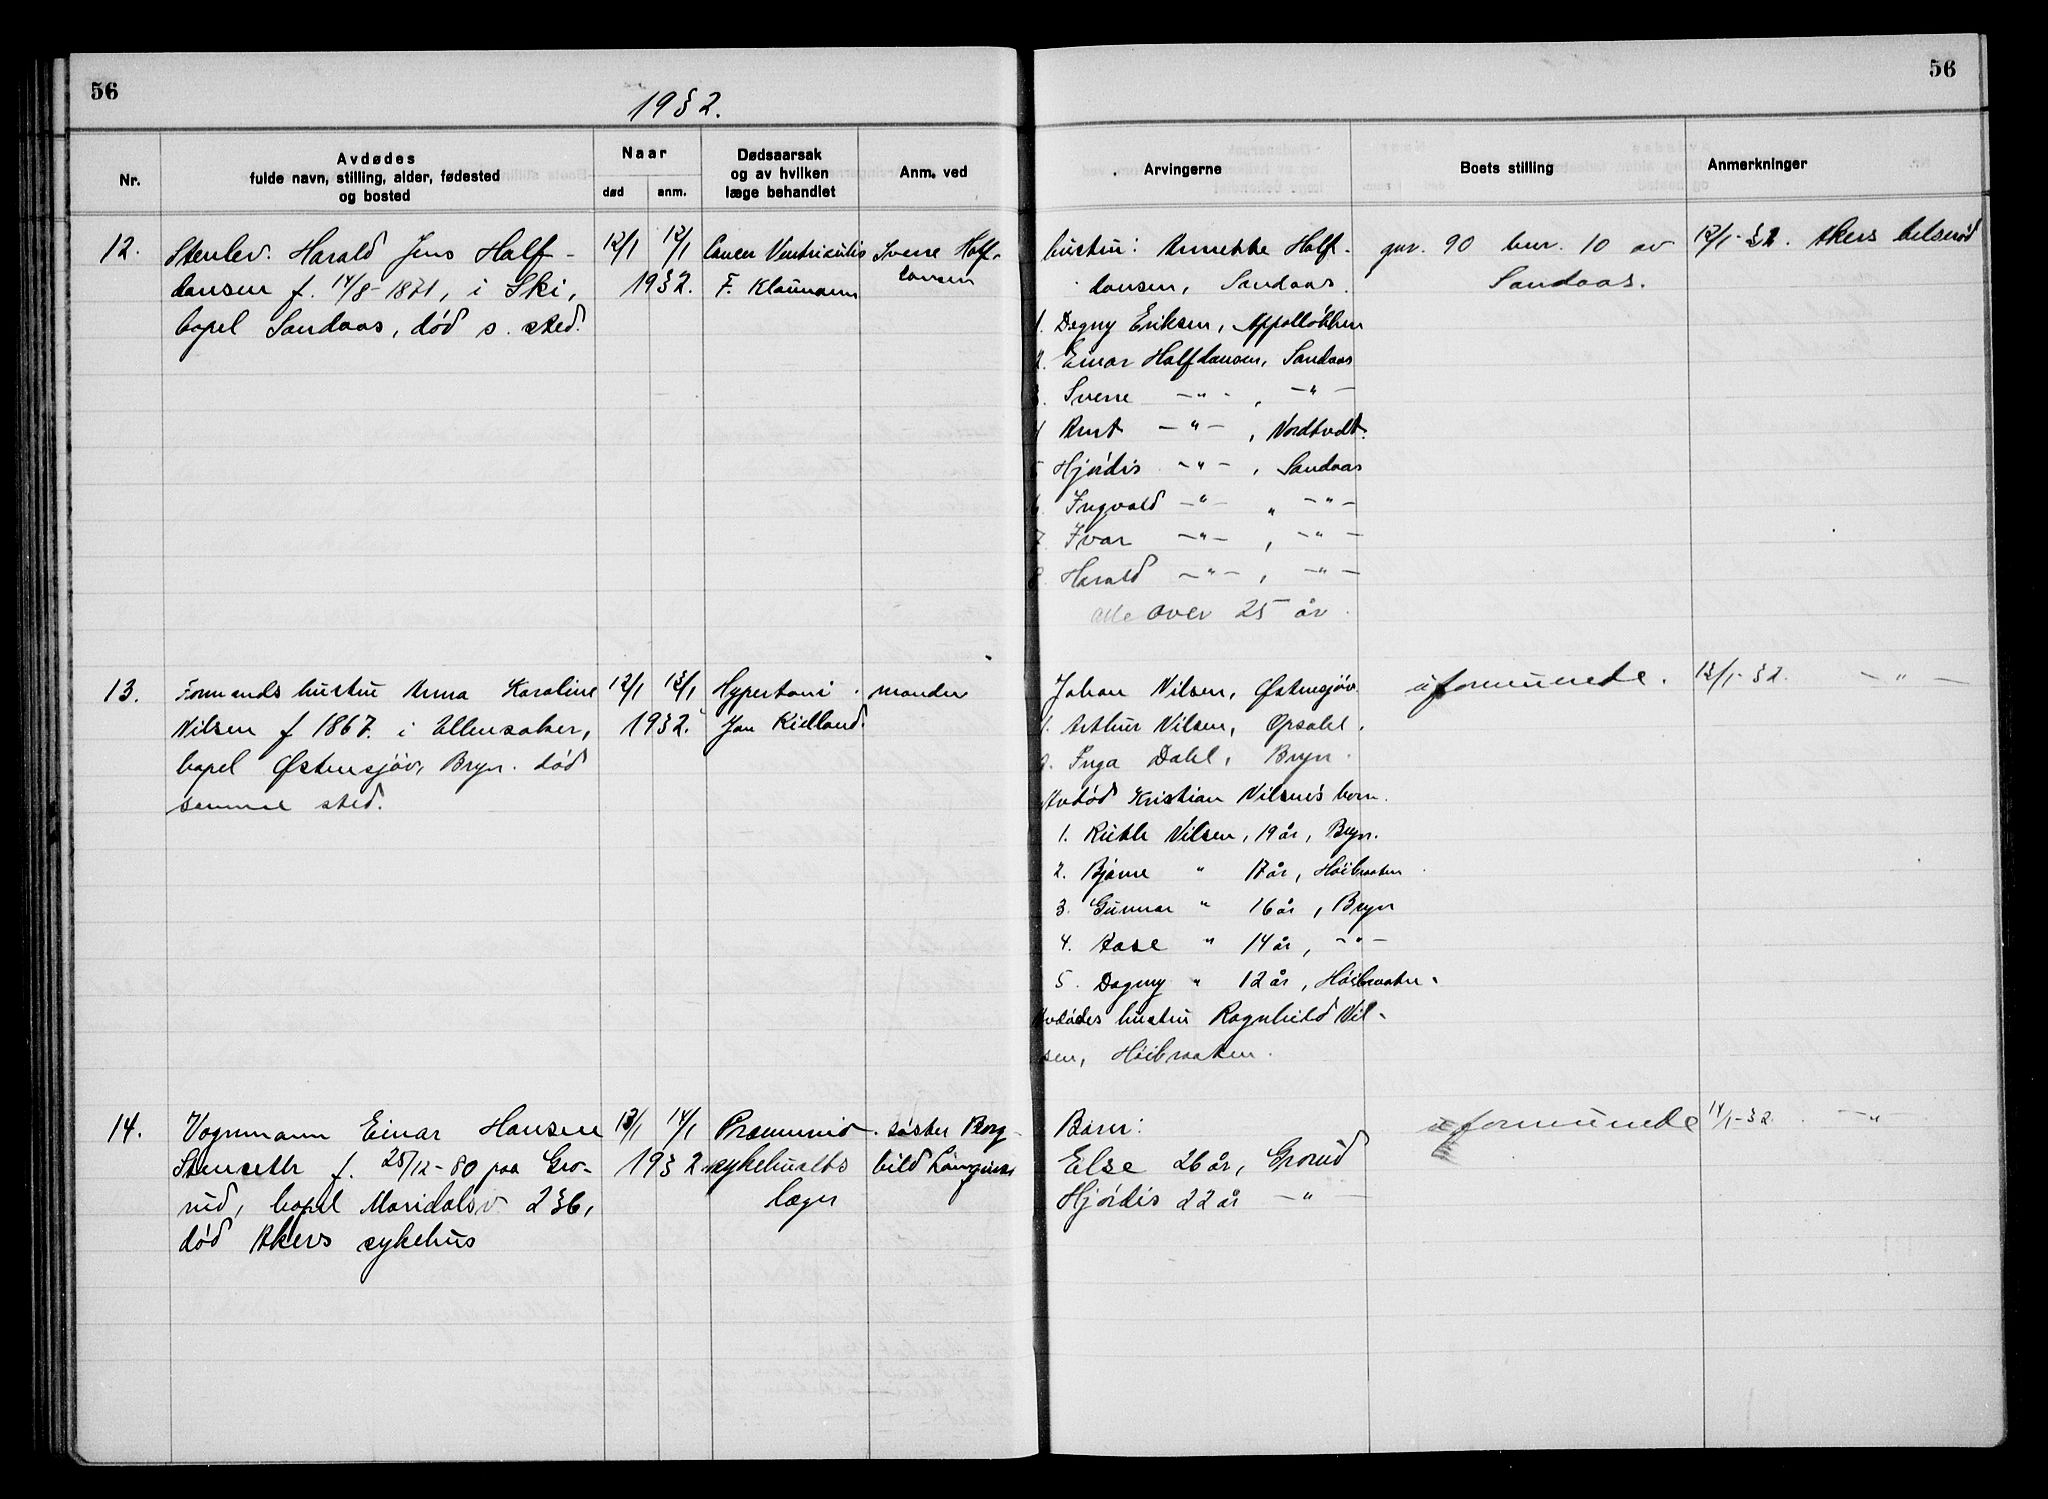 56
56
1932.
Nr.
Avdødes
fulde navn, stilling, alder, fødested
og bosted
Naar
død
anm.
Dødsaarsak
og av hvilken
læge behandlet
Anm. ved
Arvingerne
Boets stilling
Anmerkninger
12.
Stenlev. Harald Jens Half-
dansen f. 14/8-1871, i Ski,
bopel Sandaas, død s. sted.
12/1 12/1
1932.
Cancer Ventriculis
F. Klaumann
Sverre Half-
dansen
hustru: Annekke Half-
dansen, Sandaas.
1. Dagny Eriksen, Appalløkken
2. Einar Halfdansen, Sandaas
3. Sverre -"- , -"-
4 Arnt -"- , Nordtvedt.
5 Hjørdis -"- , Sandaas
6 Ingvald -"- " -"-
7. Ivar -"- , -"-
8. Harald -"- , -"-
alle over 25 år.
gnr. 90 bnr. 10 av
Sandaas.
12/1-32. Akers tilsned
13.
Formands hustru Anna Karoline
Nilsen f 1867. i Ullensaker,
bopel Østensjøv, Bryn. død
samme sted.
12/1 13/1
1932.
Hypertoni.
Jan Kielland.
manden
Johan Nilsen, Østensjøv.
1. Arthur Nilsen, Opsahl.
2. Inga Dahl, Bryn.
Avdød Kristian Nilsens barn.
1. Ruth Nilsen, 19 år, Bryn.
2. Bjarne " 17 år, Høibraaten
3. Gunnar " 16 år, Bryn
4. Aase " 14 år, -"-
5. Dagny " 12 år, Høibraaten.
Avdødes hustru Ragnhild Nil-
sen, Høibraaten.
uformuende.
13/1-32. -"-
14.
Vognmann Einar Hansen
Stenseth f. 25/12-80 paa Gro-
rud, bopel Maridalsv 236,
død Akers sykehus
13/1 14/1
1932
sykehusets
læger
søster Borg-
hild
Barn:
Else 26 år, Grorud
Hjørdis 22 år -"-
uformuende
14/1-32. -"-